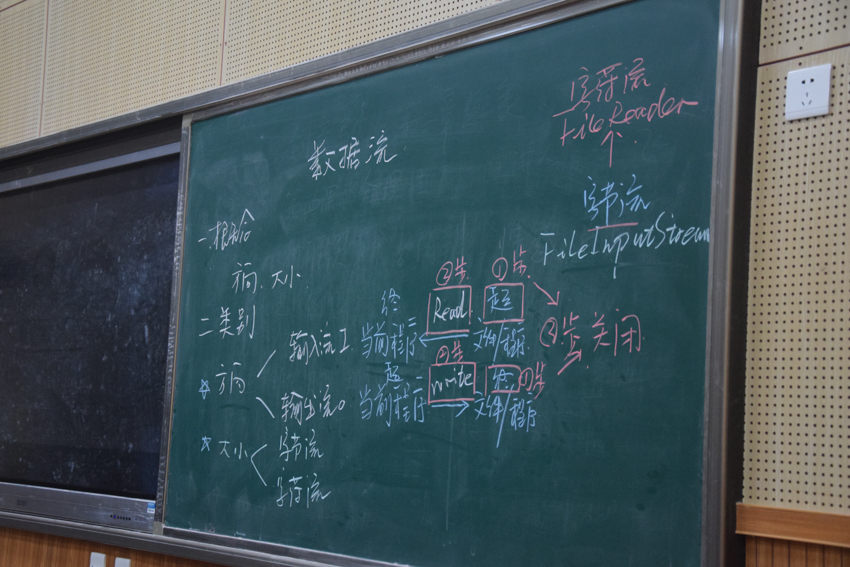 数据流
字符流
FileReader
个
字节流
FileInputStream
一.概念
方向.大小
二类别
☆方向
输入流I
输出流O
☆大小
字节流
字符流
②步 ①步
终 Read 起
当前程序 ← 文件/程序
②步
起 write 终 ①步
当前程序 → 文件/程序
③步 关闭